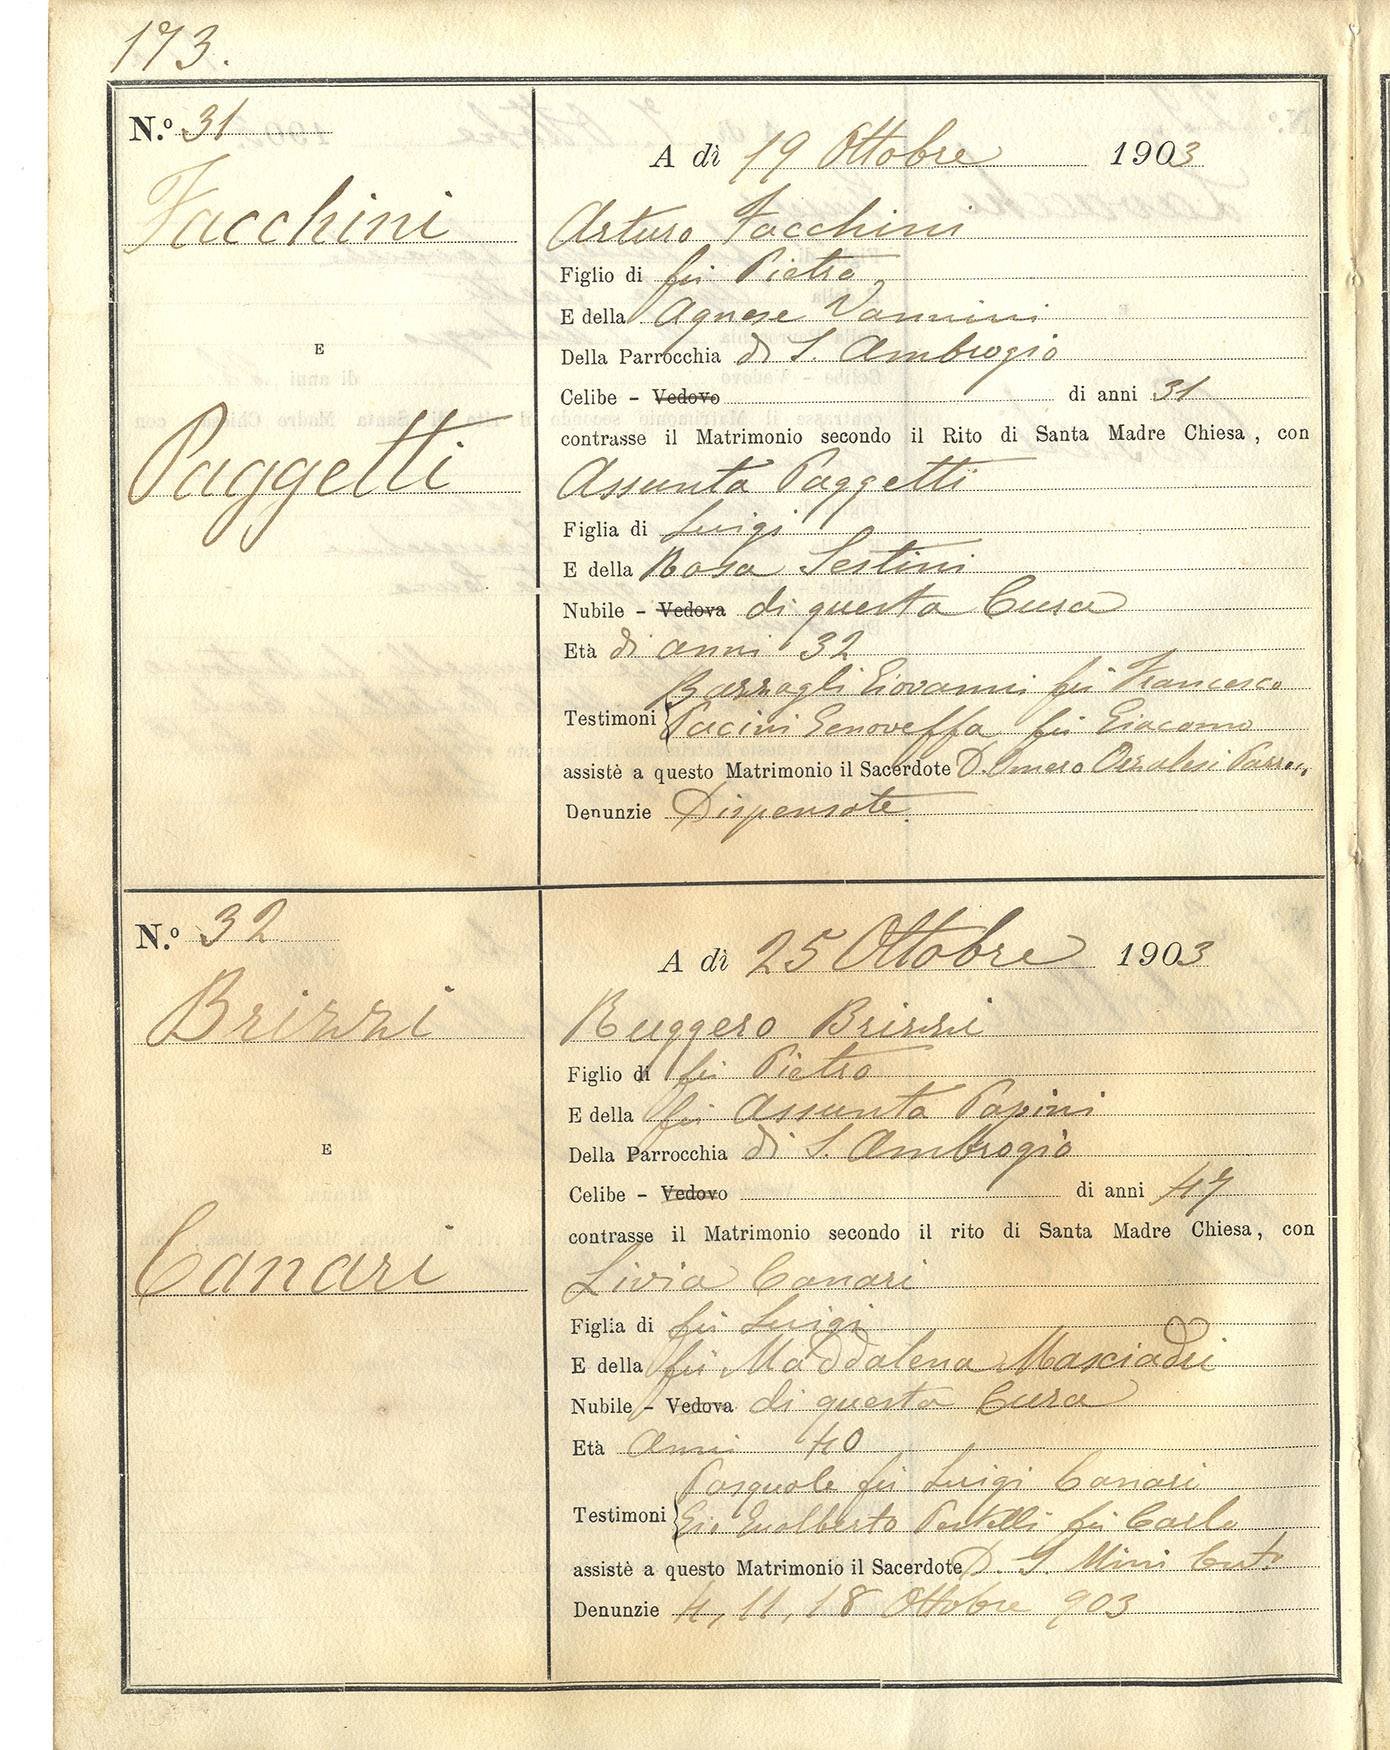 173.
N.º 31
Facchini
E
Paggetti
A dì 19 Ottobre 1903
Arturo Facchini
Figlio di fu Pietro
E della Agnese Vannini
Della Parrocchia di S. Ambrogio
Celibe - Vedovo di anni 31
contrasse il Matrimonio secondo il Rito di Santa Madre Chiesa, con
Assunta Paggetti
Figlia di Luigi
E della Rosa Sestini
Nubile - Vedova di questa Cura
Età di anni 32
Barzagli Giovanni fu Francesco
Testimoni Pacini Genoveffa fu Giacomo
assistè a questo Matrimonio il Sacerdote D. Omero Orzalesi
Denunzie Dispensate.
N.º 32
Brizzi
E
Canari
A dì 25 Ottobre 1903
Ruggero Brizzi
Figlio di fu Pietro
E della fu Assunta Papini
Della Parrocchia di S. Ambrogio
Celibe - Vedovo di anni 47
contrasse il Matrimonio secondo il rito di Santa Madre Chiesa, con
Livia Canari
Figlia di fu Luigi
E della fu Maddalena Masciadri
Nubile - Vedova di questa Cura
Età Anni 40
Pasquale fu Luigi Canari
Testimoni Gio Gualberto fu Carlo
assistè a questo Matrimonio il Sacerdote D. S. Mini
Denunzie 4, 11, 18 Ottobre 903